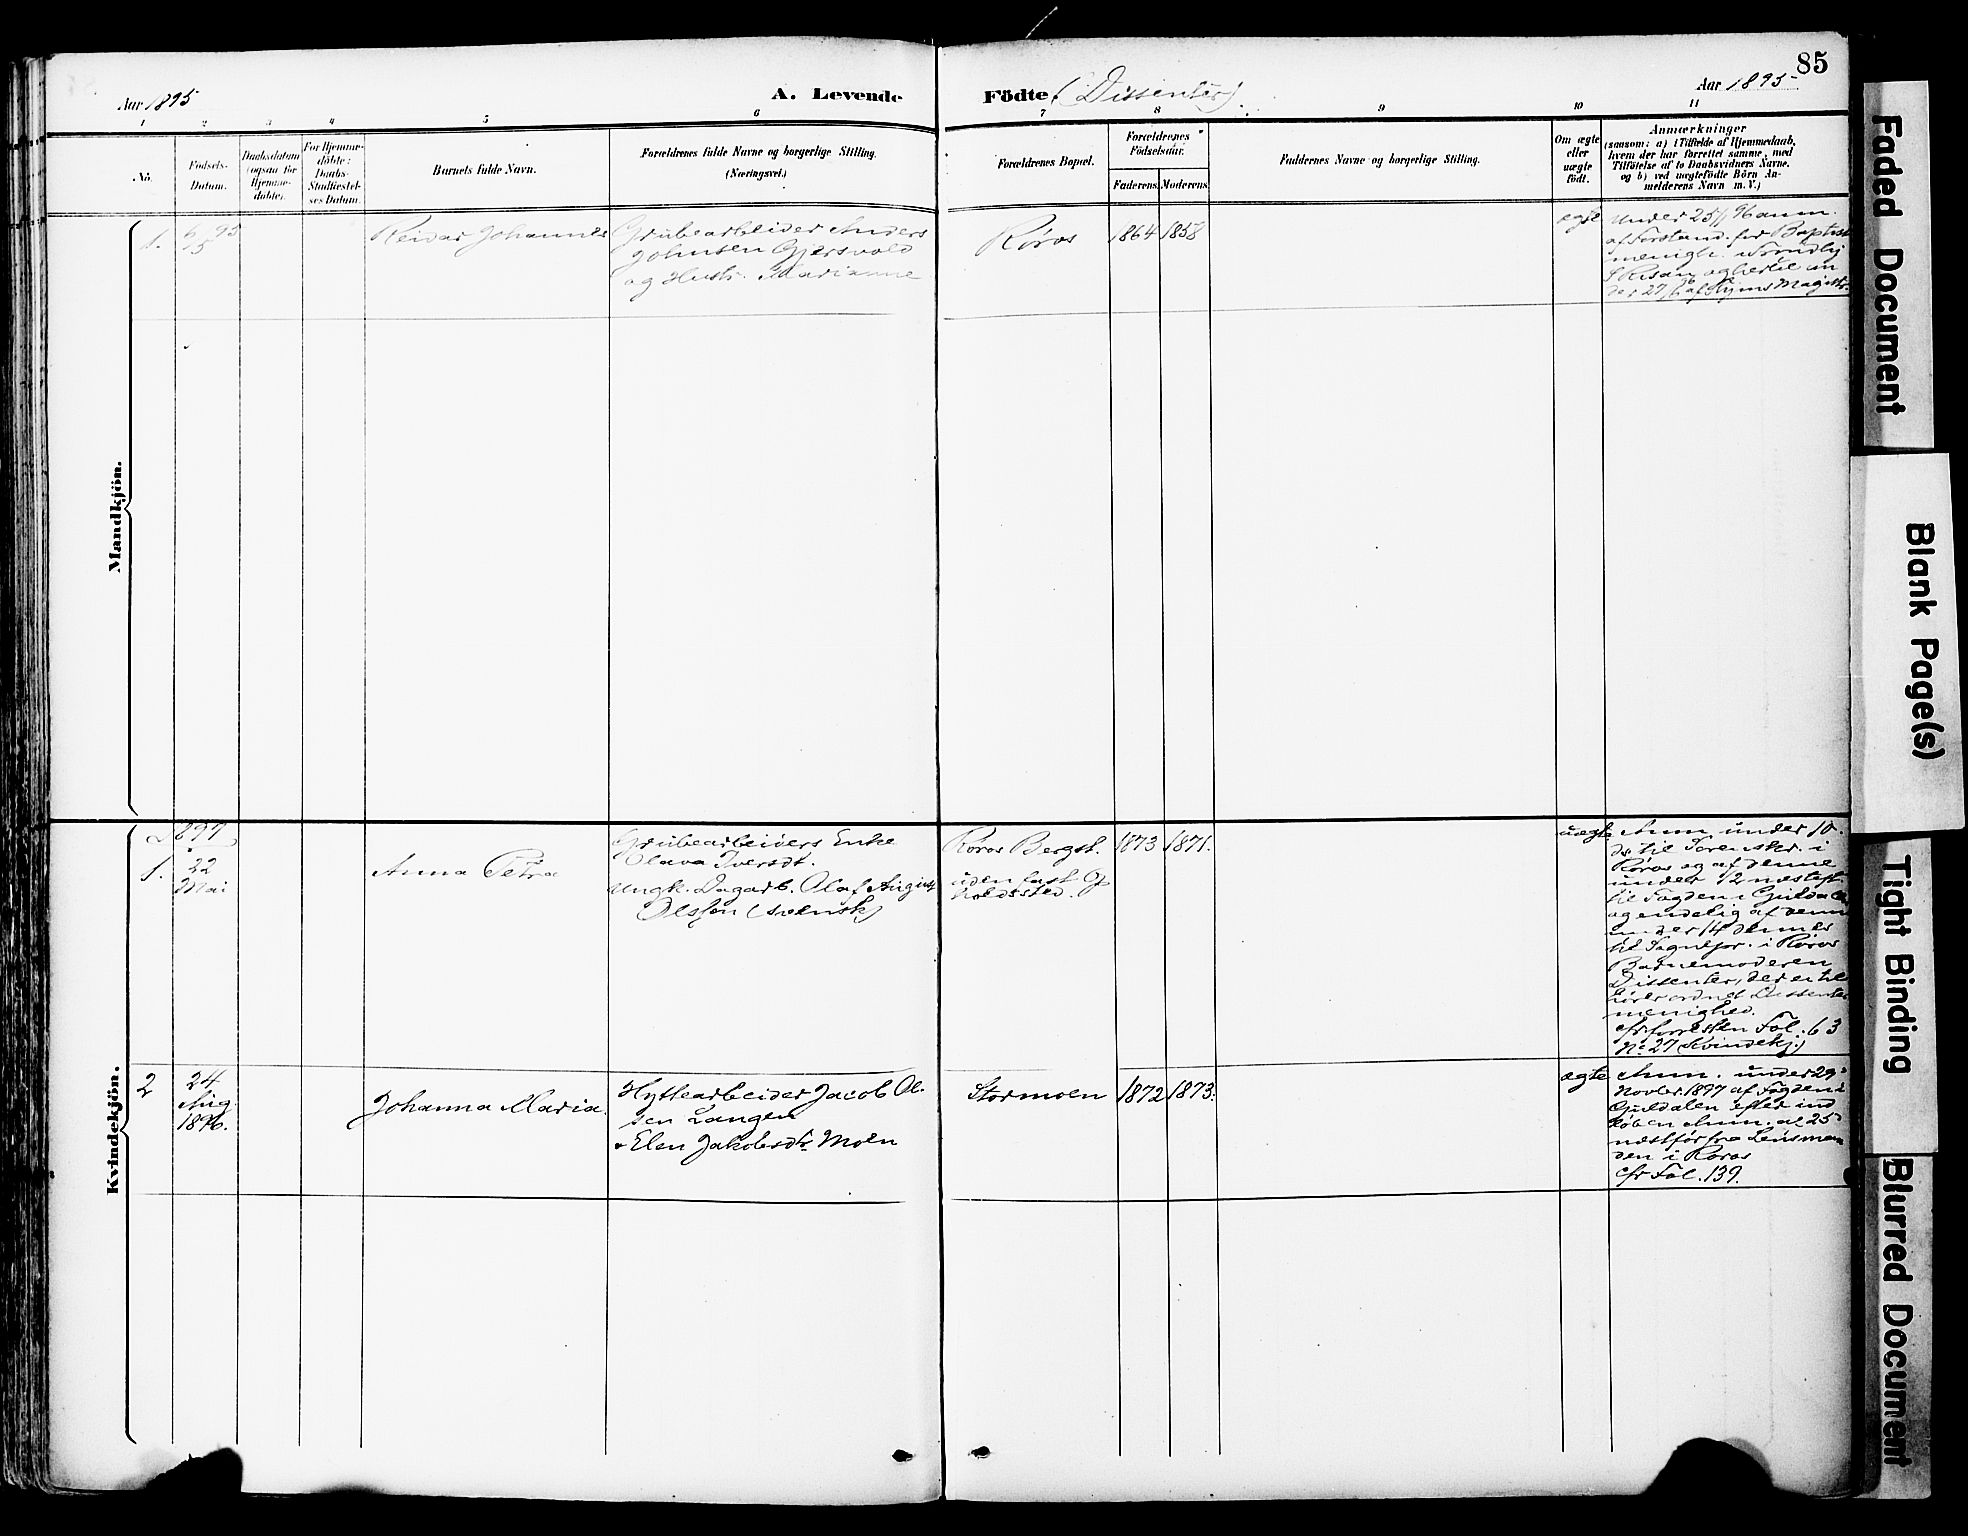 85
Aar 1895
A. Levende
Födte. (Dissenter)
Aar 1895
1 2 3 4 5 6 7 8 9 10 11
No.
Födsels-
Datum.
Daabsdatum
(ogsaa for
Hjemme-
döbte).
For Hjemme-
döbte:
Daabs-
Stadfæstel-
ses Datum.
Barnets fulde Navn.
Forældrenes fulde Navne og borgerlige Stilling.
(Næringsvei.)
Forældrenes Bopæl.
Forældrenes
Födselsaar.
Faderens. Moderens.
Faddernes Navne og borgerlige Stilling.
Om ægte
eller
uægte
födt.
Anmærkninger
(saasom: a) i Tilfælde af Hjemmedaab,
hvem der har forrettet samme, med
Tilföielse af to Daabsvidners Navne,
og b) ved uægtefödte Börn An-
melderens Navn m. V.)
Mandkjön.
1.
Reidar Johannes
Grubearbeider Anders
Johnsen Gjersvold
og Hustr. Marianne
Røros
1864 1858
ægte
Under 25/1 96 anm.
af Forstand. for Baptist
menigh. i Trondhj
Kvindekjön.
1897
1.
22
Mai
Anna Petra
Grubearbeiders Enke
Olava Iversdt.
Ungk. Dagarb. Olaf August
Olsson (svensk)
Røros Bergst.
uden fast Op
holdssted.
1873 1871.
uægte
Anm. under 10.
ds. til Lensmkr. i
Røros og af denne
under 12 næstefter
til Fogden i Guldalen
og endelig af denne
under 14 dennes
til Sognepr. i Røros
Barnemoderen
Dissenter, der ei til
hører ordnet Dissenter
menighed.
cfr forresten Fol. 63
No 27 (Kvindekj.)
2
24.
Aug
1896.
Johanna Maria.
Hyttearbeider Jacob Ol-
sen Langen
& Elen Jakobsdtr Moen
Stormoen
1872 1873.
ægte
Anm. under 29
Novbr. 1897 af Fogden i
Guldalen efter ind
løben Anm. af 25
næstfør fra Lensman
den i Røros
cfr Fol. 139.
Faded Document
Blank Page(s)
Tight Binding
Blurred Document